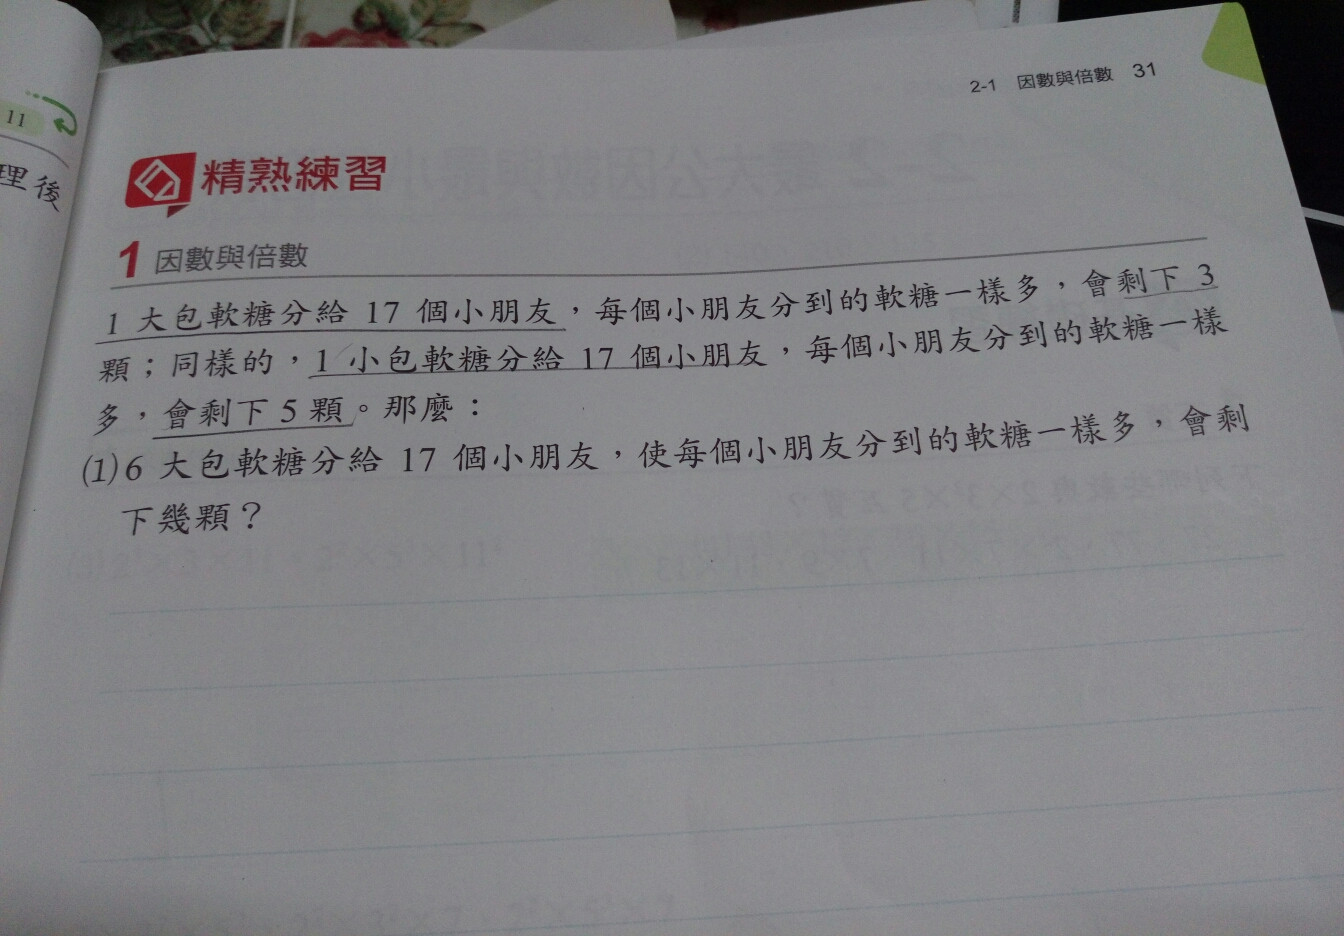 2-1 因數與倍數 31
11
理後
精熟練習
1 因數與倍數
1 大包軟糖分給 17 個小朋友，每個小朋友分到的軟糖一樣多，會剩下 3
顆；同樣的，1 小包軟糖分給 17 個小朋友，每個小朋友分到的軟糖一樣
多，會剩下 5 顆。那麼：
(1) 6 大包軟糖分給 17 個小朋友，使每個小朋友分到的軟糖一樣多，會剩
下幾顆？